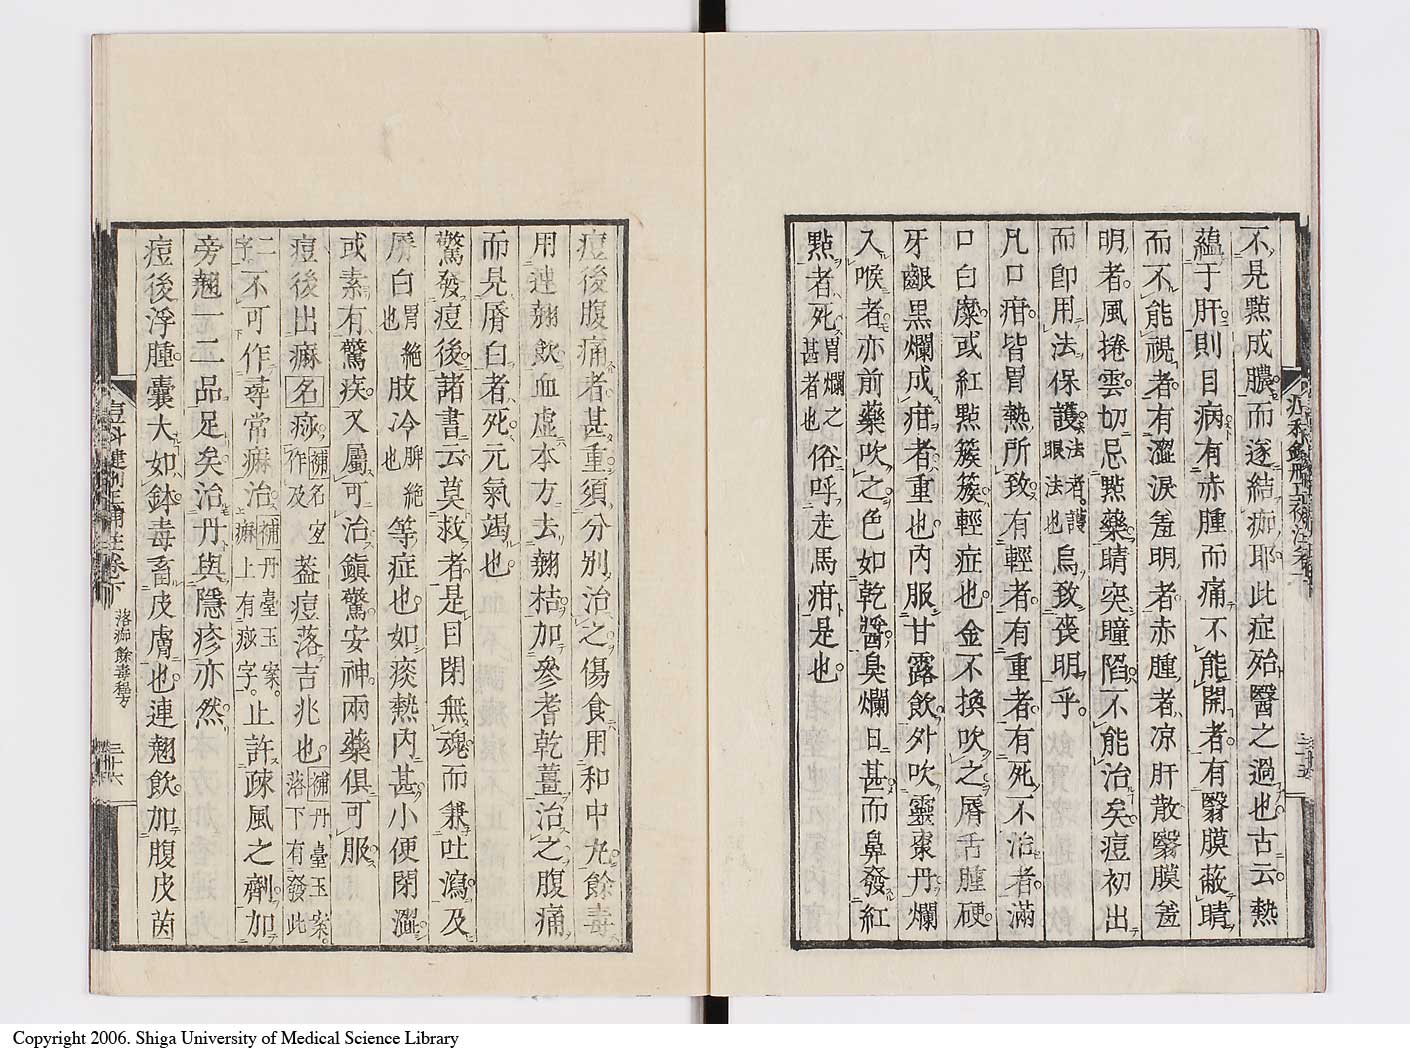 不見點成膿而遂結痂耶此症殆醫之過也古云熱
蘊于肝則目病有赤腫而痛不能開者有翳膜蔽睛
而不能視者有澀淚羞明者赤腫者凉肝散翳膜羞
明者風捲雲切忌點藥睛突瞳陷不能治矣痘初出
而卽用法保護法者護眼法也烏致喪明乎
凡口疳皆胃熱所致有輕者有重者有死不治者滿
口白糜或紅點簇簇輕症也金不換吹之脣舌腫硬
牙齦黒爛成疳者重也内服甘露飲外吹靈棗丹爛
入喉者亦前藥吹之色如乾醬臭爛日甚而鼻發紅
點者死胃爛之甚者也俗呼走馬疳是也
痘後腹痛者甚重須分別治之傷食用和中丸餘毒
用連翹飲血虛本方去翹桔加參耆乾薑治之腹痛
而見脣白者死元氣竭也
驚發痘後諸書云莫救者是目閉無魂而兼吐瀉及
脣白胃絕也肢冷脾絕也等症也如痰熱内甚小便閉澀
或素有驚疾又屬可治鎭驚安神兩藥俱可服
痘後出痲名痧補名室作及葢痘落吉兆也補丹臺玉案落下有發此
二字不可作尋常痲治補丹臺玉案痲上有痧字止許疎風之劑加
旁翹一二品足矣治丹與隱疹亦然
痘後浮腫囊大如鉢毒畜皮膚也連翹飲加腹皮茵
痘科鍵刪正補註卷下
落痂餘毒稽考
三十六